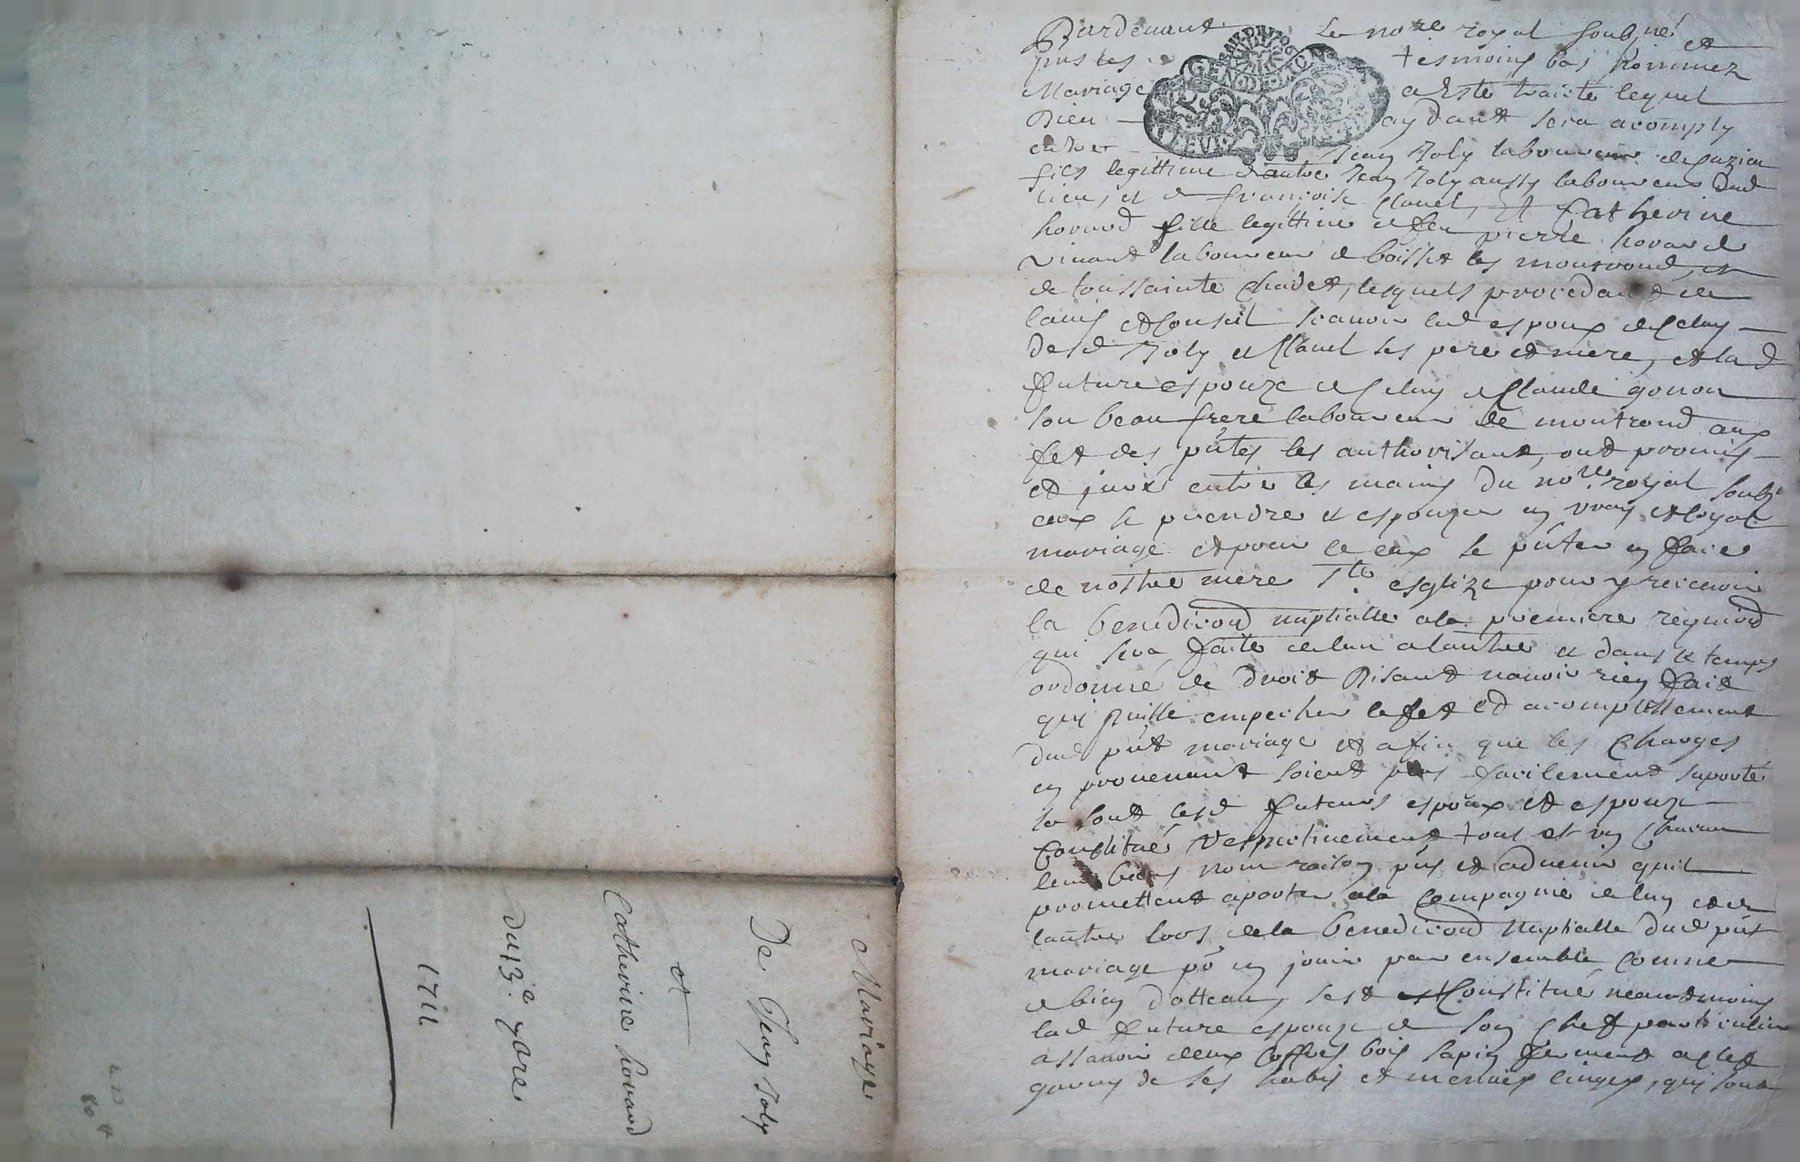 Mariage
De Jean Joly
et
Catherine hovard
du 13e 9bre
1711
Pardevant Le nore royal soubzné et
pñs les tesmoins bas nommez
Mariage a Este traicte lequel
Dieu aydant sera acomply
entre Jean Joly laboureur de
fils legittime d'autre Jean Joly aussy laboureur dud
lieu, et de françoise Clauel, Et Catherine
hovard fille legittime de feu pierre hovard
vivant laboureur de boisset les montrond, et
de toussainte Chadet, lesquels procedant de
lauis et Conseil scauoir led espoux de Celuy
desd Joly et Clauel ses pere et mere, et lad
future espouze de Celuy de Claude gonon
son beau frere laboureur de montrond aux
fet des pñtes les authorisant, ont promis
et juré entre les mains du nore royal soubz
eux se prendre et espouzer en vray et loyal
mariage et pour ce eux se pñter en face
de nostre mere Ste esglize pour y recevoir
la benediction nuptialle a la premiere requis
qui sera faite de lun a lautre et dans le temps
ordonné de droit Disant nauoir rien fait
qui puisse empecher lefet et acomplissement
dud pñt mariage et afin que les Charges
en prouenant soient plus facilement suporté
se sont lesd futeurs espoux et espouze
Constitués respectiuement tous et un Chacun
leurs biens nom raison pñs et aduenir quil
promettent aporter a la Compagnie de lun et de
lautre lors de la benediction Nuptialle dud pñt
mariage po en jouir par ensemble Comme
de bien dotteau, sest Constitué neantmoins
lad future espouze de son Chef particulier
assauoir deux Coffres bois sapin fermant a Clef
garny de ses habis et menues linges, qui sont